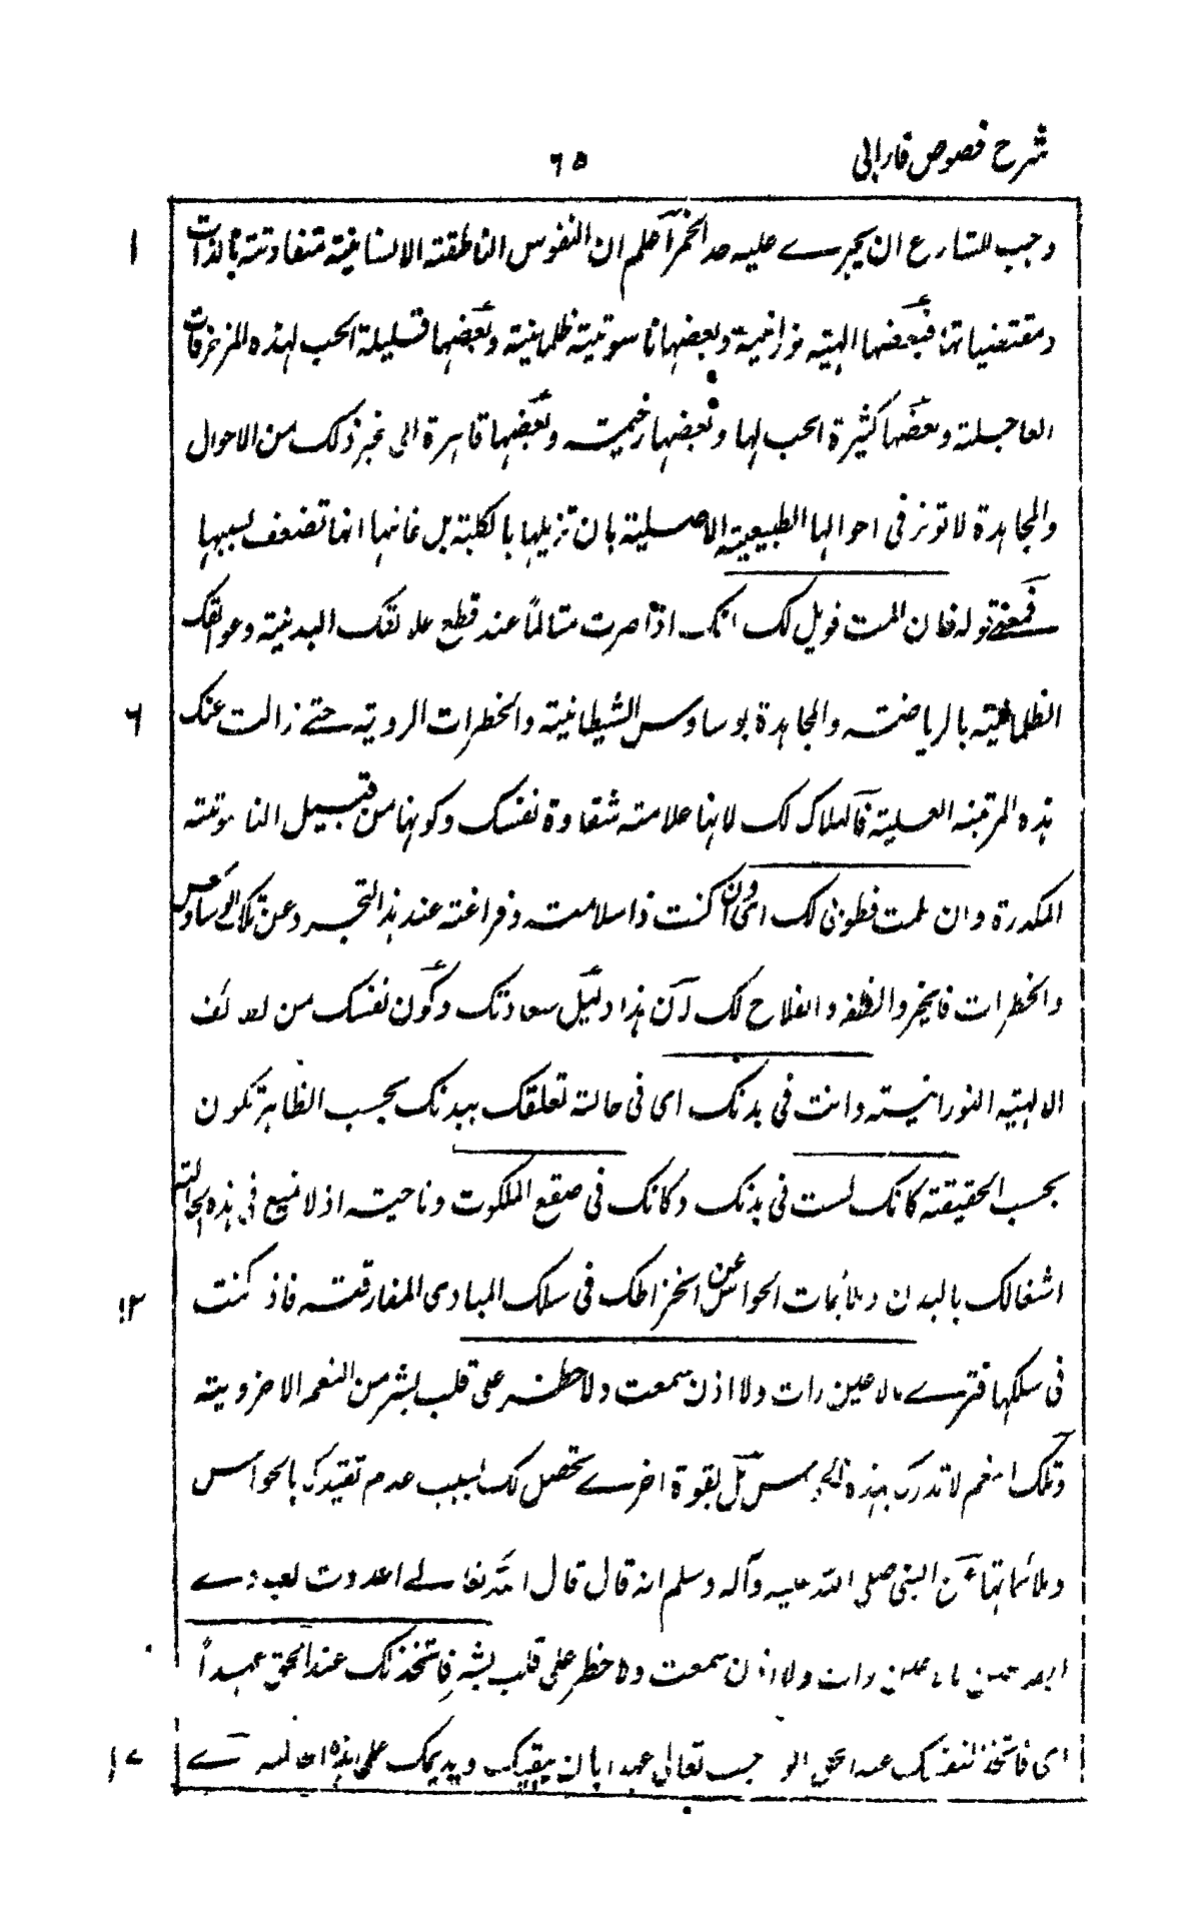 شرح فصوص فارابی
٦٥
وجب للشارع ان یجرے علیه حد الخمر اعلم ان النفوس الناطقة الانسانیة متفاوتة بالذات
١
ومقتضیاتها فبعضها الهیة نورانیة وبعضها ناسوتیة ظلمانیة وبعضها قلیلة الحب لهذه المزخرفات
العاجلة وبعضها کثیرة الحب لها وبعضها رخیمة وبعضها قاهرة الی غیر ذلک من الاحوال
والمجاهدة لا توثر فی احوالها الطبیعیة الاصلیة بان تزیلها بالکلیة بل غایتها انها تضعف بسببها
فمعنے قوله فان المت فویل لک انک اذا صرت متالماً عند قطع علائقک البدنیة وعوائقک
الظلمانیة بالریاضة والمجاهدة بوساوس الشیطانیة والخطرات الردیة حتے زالت عنک
٦
هذه المرتبة العلیة فالهلاک لک لانها علامة شقاوة نفسک وکونها من قبیل الناسوتیة
المکدرة وان سلمت فطوبی لک ای وان کنت ذا سلامة وفراغة عند هذا التجرد وعن تلک الوساوس
والخطرات فالخیر والظفر والفلاح لک لان هذا دلیل سعادتک وکون نفسک من لطائف
الالهیة النورانیة وانت فی بدنک ای فی حالة تعلقک ببدنک بحسب الظاهر تکون
بحسب الحقیقة کانک لست فی بدنک وکانک فی صقع الملکوت وناحیة اذ لا نمیع فی هذه الحالة
اشغالک بالبدن وملائمات الحواس عن انخراطک فی سلک المبادی المفارقة فاذ کنت
١٢
فی سلکها فترے ما لا عین رات ولا اذن سمعت ولا خطر علی قلب بشر من النعم الاخرویة
وتلک النعم لا تدرک بهذه الحواس بل بقوة اخرے تحصل لک بسبب عدم تقیدک بالحواس
وملائماتها عن النبی صلی الله علیه وآله وسلم انه قال قال الله تعالے اعددت لعبادے
الصالحین ما لا عین رات ولا اذن سمعت ولا خطر علی قلب بشر فاتخذ لک عند الحق عهداً
ای فاتخذ لنفسک عند الحق الواجب تعالی عهدا بان یبقیک ویدیمک علی هذه الحالة
١٧